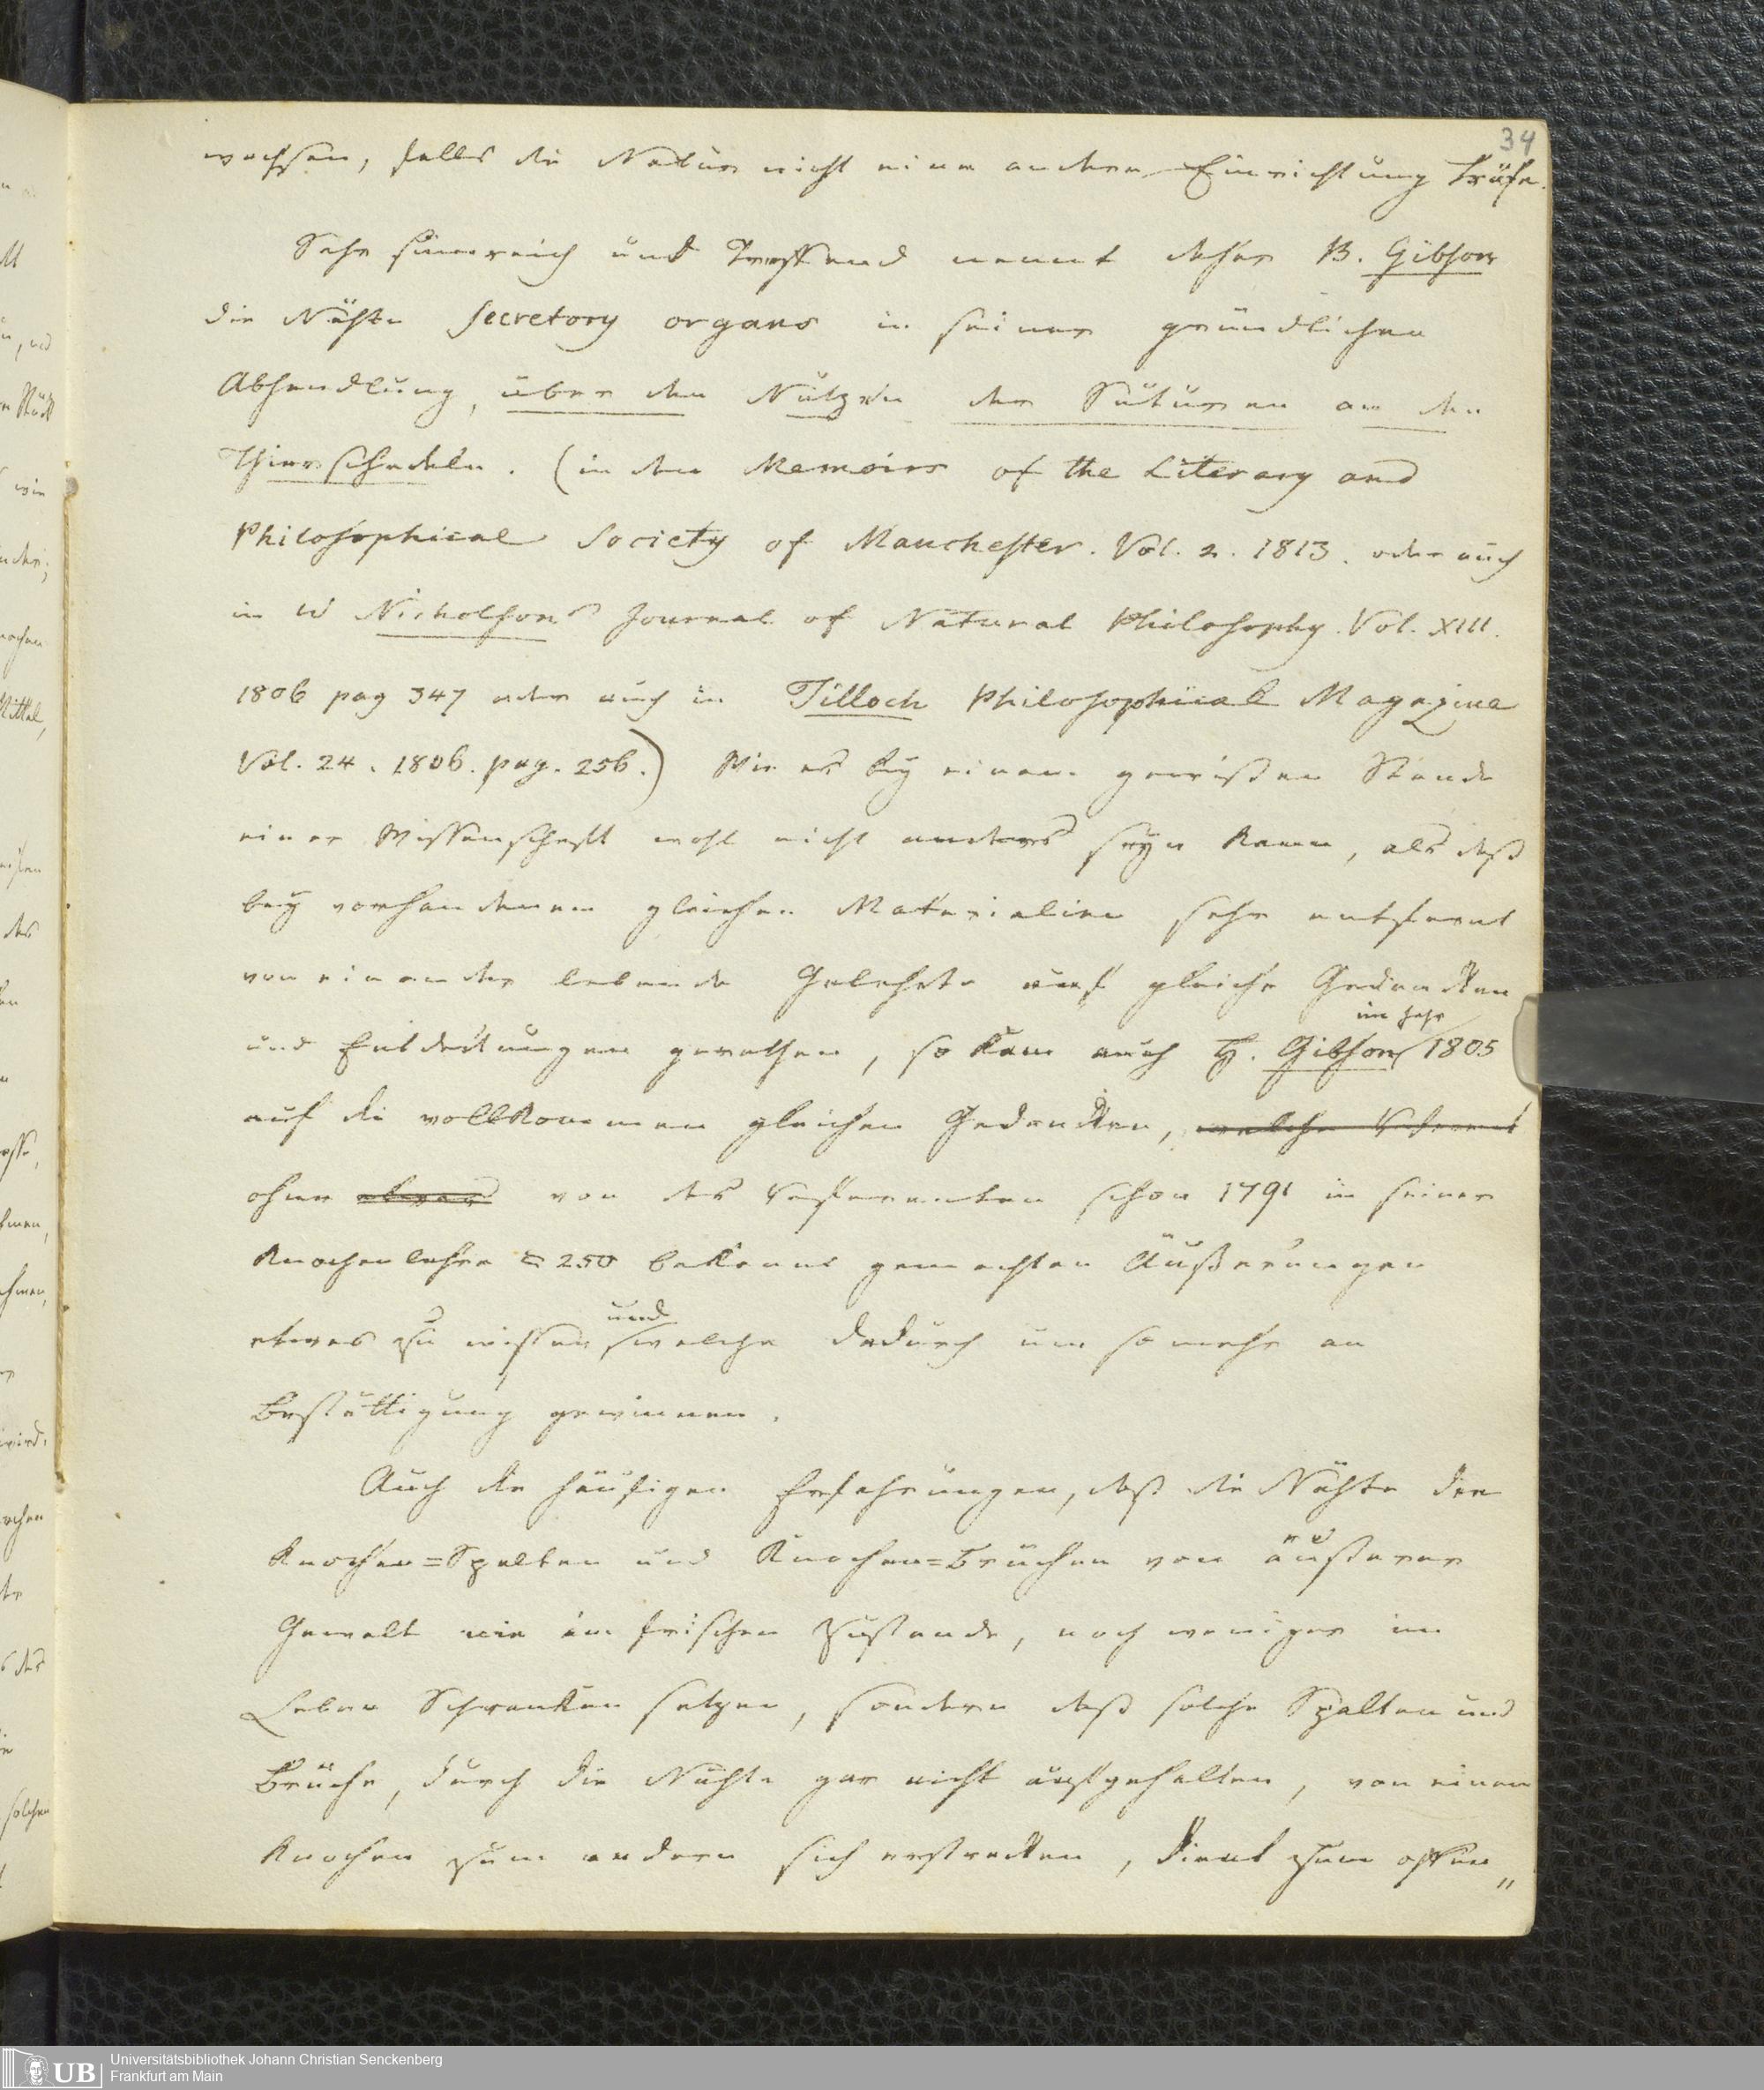 34
wachsen, falls die Natur nicht eine andere Einrichtung träfe.
Sehr sinnreich und treffend nennt daher B. Gibson
die Nähte secretory organs in seiner gründlichen
Abhandlung, über den Nutzen der Suturen an den
Thierschedeln. (in den Memoirs of the Literary and
Philosophical Society of Manchester. Vol. 2. 1813. oder auch
in W Nicholson's Journal of Natural Philosophy. Vol. XIII.
1806 pag 347 oder auch in Tilloch Philosophical Magazine
Vol. 24. 1806. pag. 256.) Wie es bey einem gewißen Stande
einer Wissenschaft wohl nicht anders seyn kann, als daß
bey vorhandenen gleichen Materialien sehr entfernt
von einander lebende Gelehrte auf gleiche Gedancken
und Entdeckungen gerathen, so kam auch H. Gibson im Jahr 1805
auf die vollkommen gleichen Gedancken, welche
ohne etwas von des Verfassers schon 1791 in seiner
Knochenlehre § 250 bekannt gemachten Äußerungen
etwas zu wissen, und welche dadurch um so mehr an
Bestättigung gewinnen.
Auch die häufigen Erfahrungen, daß die Nähte den
Knochen=Spalten und Knochen=Brüchen von äußerer
Gewalt nie im frischen Zustande, noch weniger im
Leben Schranken setzen, sondern daß solche Spalten und
Brüche, durch die Nähte gar nicht aufgehalten, von einem
Knochen zum andern sich erstrecken, dient zum offen„
Universitätsbibliothek Johann Christian Senckenberg
Frankfurt am Main
UB